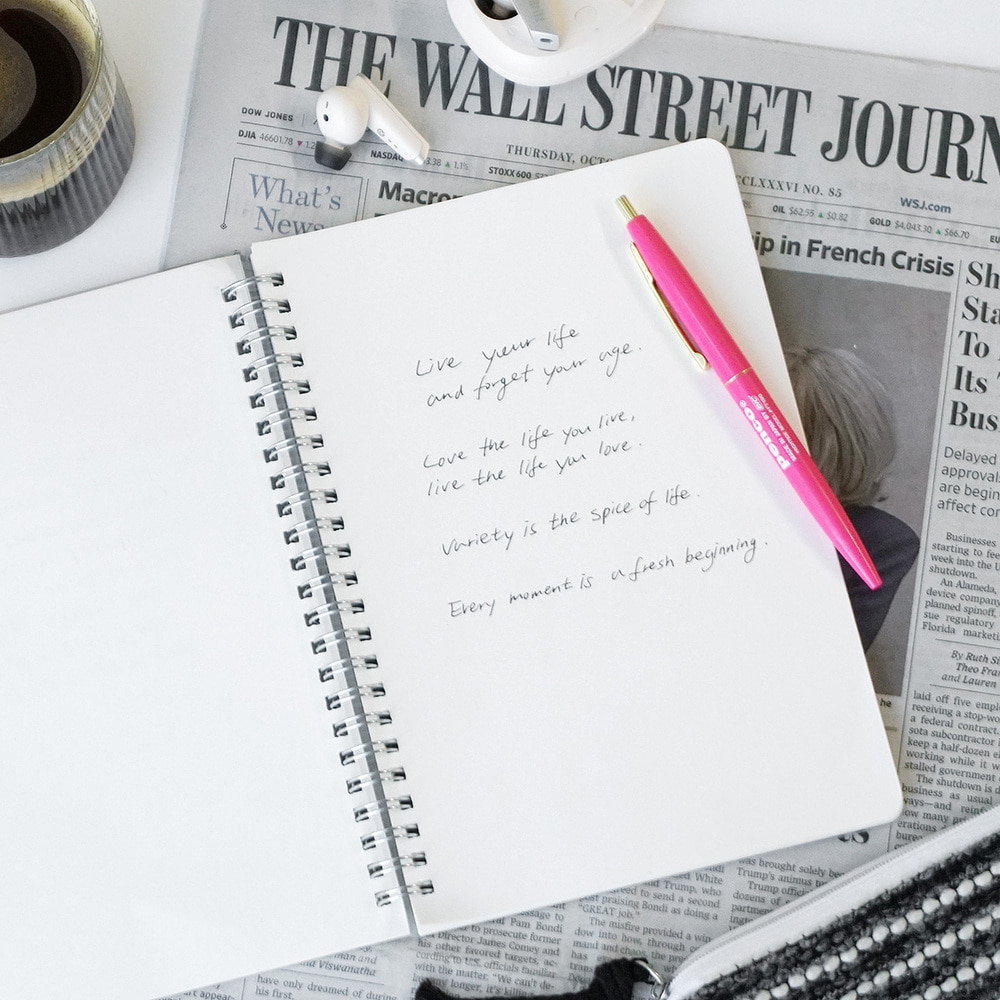 THE WALL STREET JOURN
DOW JONES
DJIA 46601.78 ▼
NASDAQ 3.38 ▲ 1.1%
STOXX 600
THURSDAY,
CCLXXXVI NO. 85
WSJ.com
OIL $62.55 ▲ $0.82
GOLD $4,043.30 ▲ $66.70
What's
News
Macro
ip in French Crisis
Live your life
and forget your age.
Love the life you live,
live the life you love.
Variety is the spice of life.
Every moment is a fresh beginning.
penco®
MADE IN JAPAN BY
Sh
Sta
To
Its
Bus
Delayed
approvals
are begin
affect con
Businesses
starting to fee
week into the U
shutdown.
An Alameda,
device company
planned spinoff,
sue regulatory
Florida marketi
By Ruth Si
Theo Fran
and Lauren
he
laid off five emplo
receiving a stop-wo
a federal contract.
sota subcontractor i
keep a half-dozen e
working while it w
stalled government
The shutdown is d
business as usual
ways—and reinf
ow many pro
erations
es
was brought solely bec
Trump's animus to
Trump offici
dozens of
partmen
White
and Trump, who
agreed to send a second
praising Bondi as doing a
"GREAT job."
The misfire provided a win
dow into how, through
mand and chaos
message to
Pam Bondi
to prosecute former
Director James Comey and
his other favored targets, ac-
cording to U.S. officials familiar
with the matter. "We can't de-
any longer, it's killing
man and
Viswanatha
have only dreamed of during
his first.